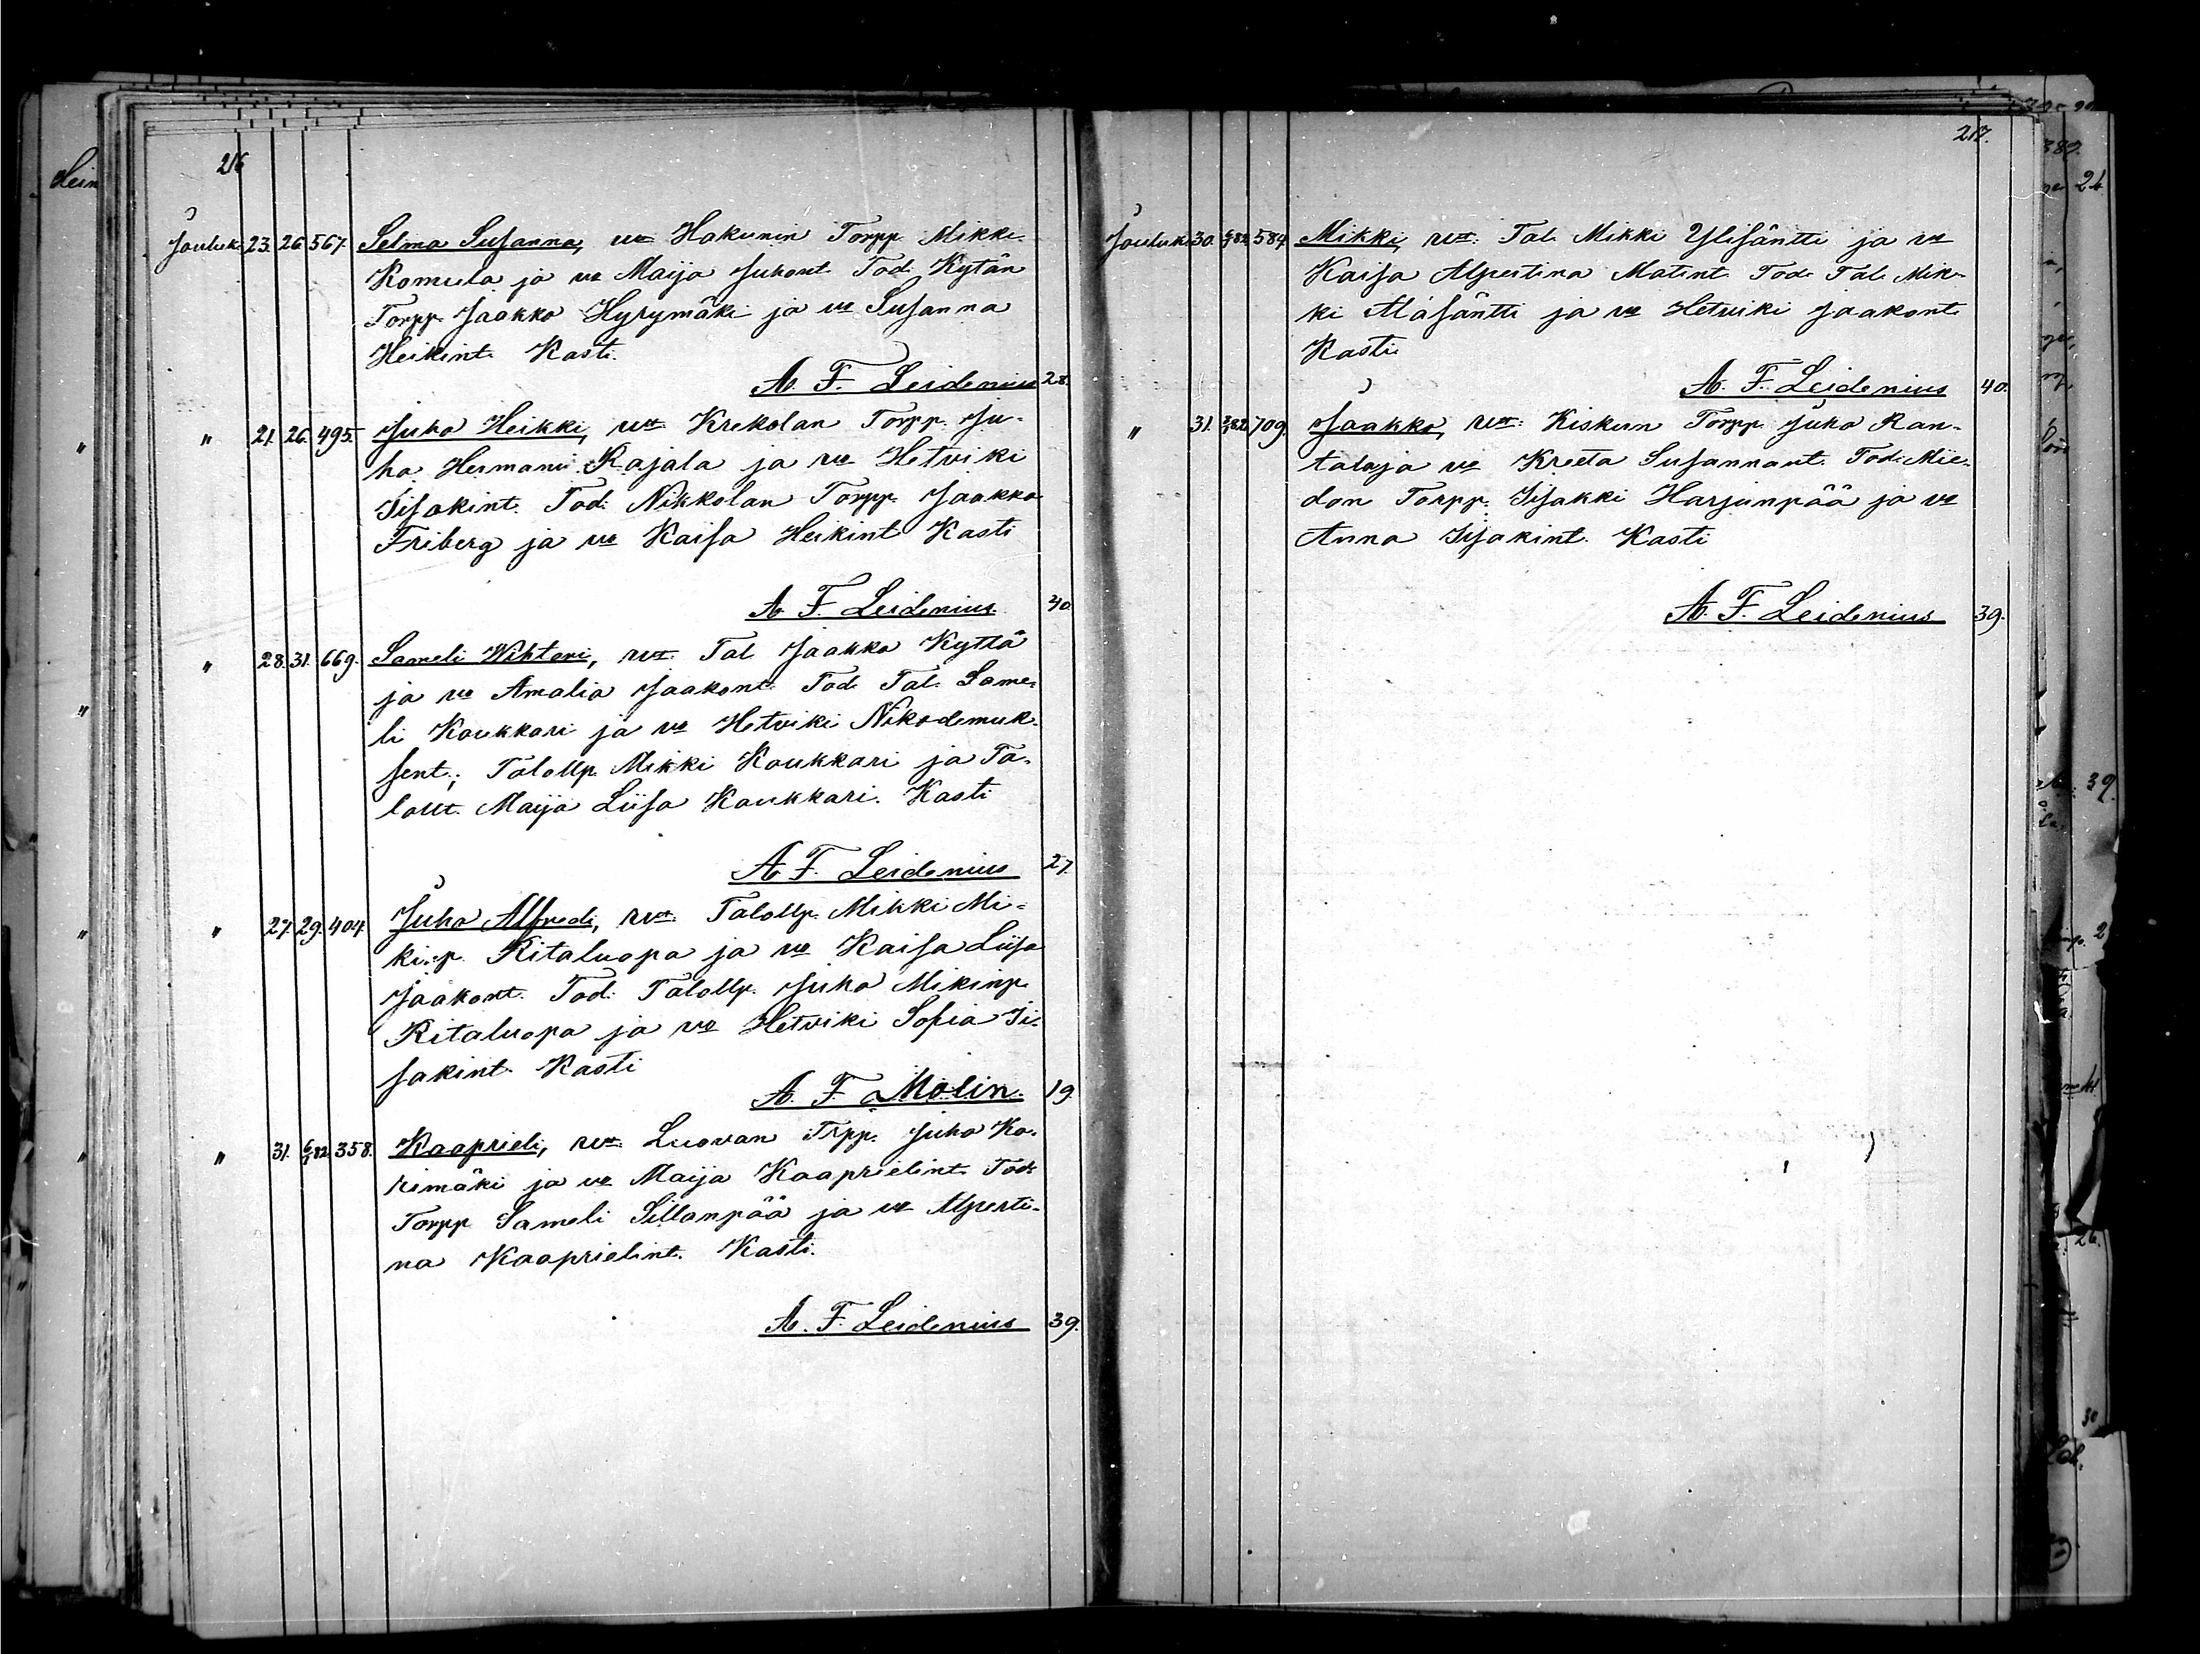 216
Jouluk. 23. 26. 567. Selma Susanna, vt Hakunin Torpp. Mikki
Romula ja vo Maija Juhont. Tod. Kytän
Torpp. Jaakko Hyrymäki ja vo Susanna
Heikint. Kasti.
A. F. Leidenius 28.
" 21. 26. 495. Juho Heikki, vt. Krekolan Torpp. Ju-
ho Hermanni Rajala ja vo Hetviki
Iisakint. Tod. Nikkolan Torpp. Jaakko
Friberg ja vo Kaisa Heikint. Kasti
A. F. Leidenius. 40.
" 28. 31. 669. Sameli Wihtori, vt. Tal. Jaakko Kyttä
ja vo Amalia Jaakont. Tod. Tal. Same-
li Koukkari ja vo Hetviki Nikodemuk-
sent.; Talollp. Mikki Koukkari ja Ta-
lollt. Maija Liisa Koukkari. Kasti
A. F. Leidenius 27.
" 27. 29. 404. Juho Alfredi, vt. Talollp. Mikki Mi-
kinp. Ritaluopa ja vo Kaisa Liisa
Jaakont. Tod. Talollp. Juho Mikinp.
Ritaluopa ja vo Hetviki Sofia Ii-
sakint. Kasti
A. F. Molin. 19.
" 31. 6/1 82. 358. Kaaprieli, vt. Luovan Trpp. Juho Ko-
rimäki ja vo Maija Kaaprielint. Tod.
Torpp. Sameli Sillanpää ja vo Alperti-
na Kaaprielint. Kasti.
A. F. Leidenius 39.
217.
Jouluk. 30. 82. 584. Mikki, vt. Tal. Mikki Ylisäntti ja vo
Kaisa Alpertina Matint. Tod. Tal. Mik-
ki Alasäntti ja vo Hetviki Jaakont.
Kasti
A. F. Leidenius 40.
" 31. 82. 709. Jaakko, vt. Kiskun Torpp. Juho Ran-
tala ja vo Kreeta Susannant. Tod. Mie-
don Torpp. Iisakki Harjunpää ja vo
Anna Iisakint. Kasti
A. F. Leidenius 39.